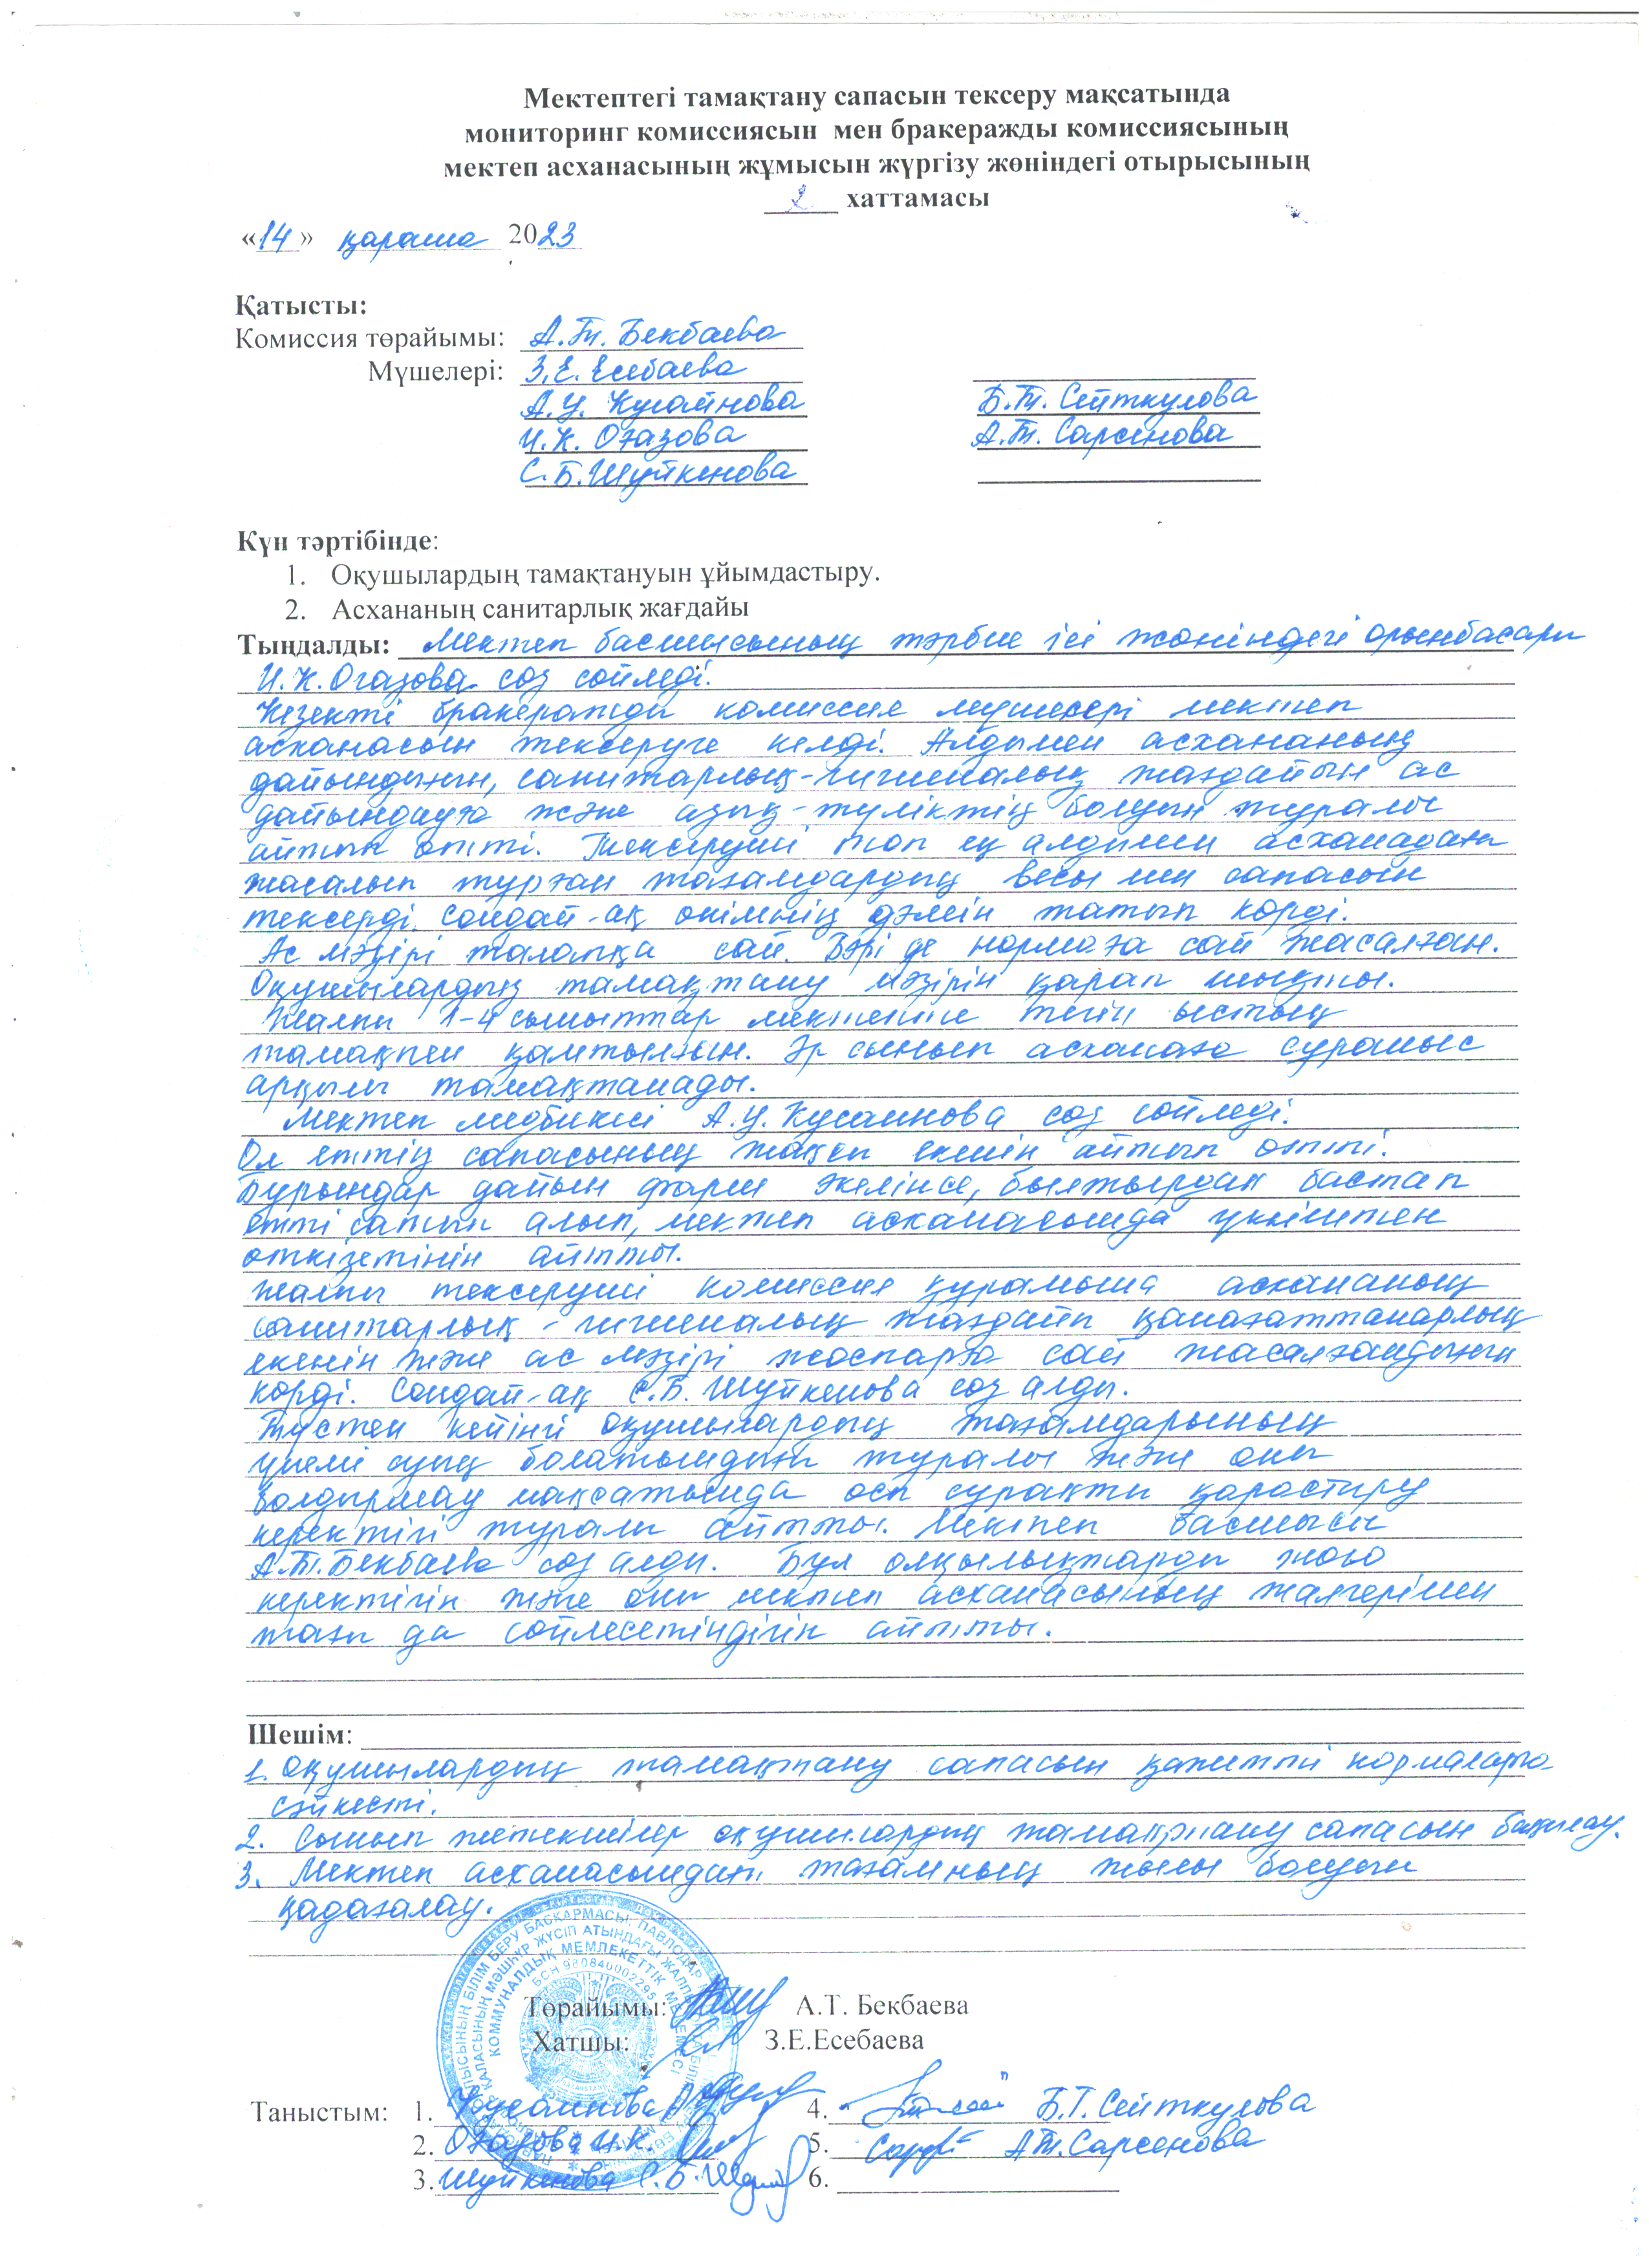 Мектептегі тамақтану сапасын тексеру мақсатында
мониторинг комиссиясын мен бракеражды комиссиясының
мектеп асханасының жұмысын жүргізу жөніндегі отырысының
2 хаттамасы
«14» қараша 2023
Қатысты:
Комиссия төрайымы: А.Т. Бекбаева
Мүшелері: З.Е. Есебаева
А.У. Кусайнова Б.Т. Сейткулова
И.К. Оғазова А.Т. Сарсенова
С.Б. Шуйкенова
Күн тәртібінде:
1. Оқушылардың тамақтануын ұйымдастыру.
2. Асхананың санитарлық жағдайы
Тыңдалды: Мектеп басшысының тәрбие ісі жөніндегі орынбасары
И.К. Огазова сөз сөйледі.
Кезекті бракеражды комиссия мүшелері мектеп
асханасын тексеруге келді. Алдымен асхананың
дайындығын, санитарлық-гигиеналық жағдайын ас
дайындауға және азық-түліктің болуын туралы
айтып өтті. Тексеруші топ ең алдымен асханадағы
жасалып тұрған тағамдардың весы мен сапасын
тексерді. Сондай-ақ өнімнің дәмін татып көрді.
Ас мәзірі талапқа сай. Бәрі де нормаға сай жасалған.
Оқушылардың тамақтану мәзірін қарап шықты.
Жалпы 1-4 сыныптар мектепте тегін ыстық
тамақпен қамтылған. Әр сынып асханаға сұраныс
арқылы тамақтанады.
Мектеп медбикесі А.У. Кусаинова сөз сөйледі.
Ол еттің сапасының жақсы екенін айтып өтті.
Бұрындар дайын фарш әкелінсе, былтырдан бастап
етті сатып алып, мектеп асханасында үккіштен
өткізетінін айтты.
Жалпы тексеруші комиссия құрамына асхананың
санитарлық-гигиеналық жағдайы қанағаттанарлық
екенін және ас мәзірі жоспарға сай жасалғандығын
көрді. Сондай-ақ С.Б. Шуйкенова сөз алды.
Түстен кейінгі оқушылардың тағамдарының
үнемі суық болатындығы туралы және оны
болдырмау мақсатында осы сұрақты қарастыру
керектігі туралы айтты. Мектеп басшысы
А.Т. Бекбаева сөз алды. Бұл олқылықтарды жою
керектігін және оны мектеп асханасының жалгерімен
тағы да сөйлесетіндігін айтты.
Шешім:
1. Оқушылардың тамақтану сапасын қажетті нормаларға
сәйкесті.
2. Сынып жетекшілер оқушылардың тамақтану сапасын бақылау.
3. Мектеп асханасындағы тағамның жылы болуын
қадағалау.
Төрайымы: А.Т. Бекбаева
Хатшы: З.Е.Есебаева
Таныстым: 1. Кусаинова 4. Б.Т. Сейткулова
2. Оғазова И.К. 5. А.Т. Сарсенова
3. Шуйкенова С.Б. 6.
КОММУНАЛДЫҚ МЕМЛЕКЕТТІК МЕКЕМЕСІ
БСН 980840002295